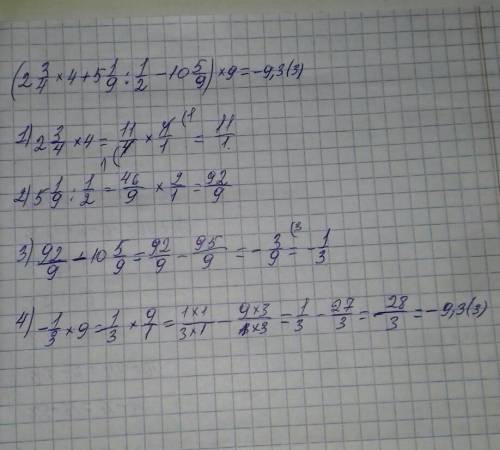 (2 3/4 × 4 + 5 1/9 : 1/2 − 10 5/9) × 9 = −9,3(3)
1) 2 3/4 × 4 = 11/4 × 4/1 = 11/1
2) 5 1/9 : 1/2 = 46/9 × 2/1 = 92/9
3) 92/9 − 10 5/9 = 92/9 − 95/9 = − 3/9 (3 = − 1/3
4) − 1/3 × 9 = 1/3 × 9/1 = 1×1/3×1 − 9×3/1×3 = 1/3 − 27/3 = − 28/3 = −9,3(3)